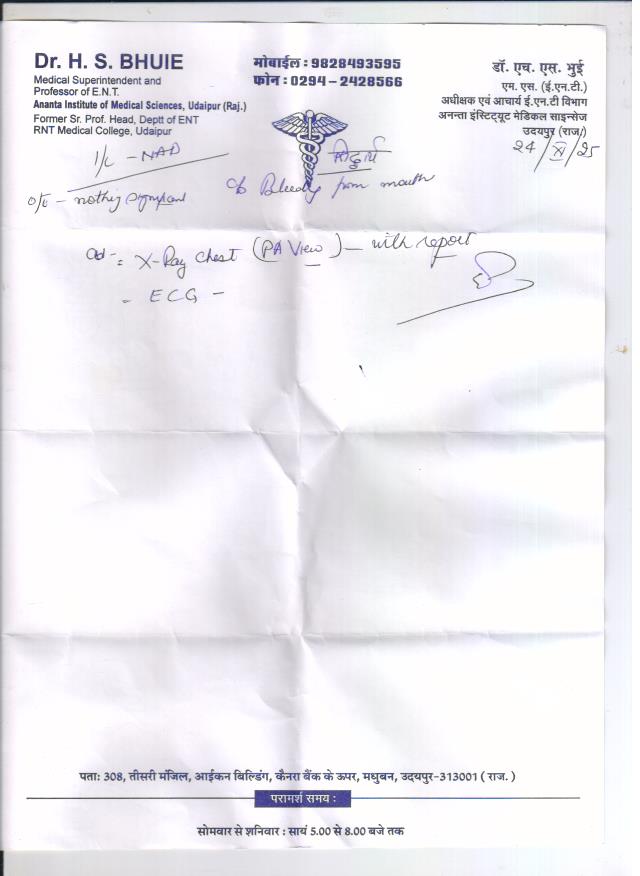 Dr. H. S. BHUIE
Medical Superintendent and
Professor of E.N.T.
Ananta Institute of Medical Sciences, Udaipur (Raj.)
Former Sr. Prof. Head, Deptt of ENT
RNT Medical College, Udaipur
मोबाईल : 9828493595
फोन : 0294-2428566
डॉ. एच. एस. भुई
एम. एस. (ई.एन.टी.)
अधीक्षक एवं आचार्य ई.एन.टी विभाग
अनन्ता इंस्टिट्यूट मेडिकल साइन्सेज
उदयपुर (राज.)
24/XI/25
I/L - NAD
सिद्धार्थ
O/E - nothing significant
c/o Bleeding from mouth
Ad - : X-Ray chest (PA View) - with report
- ECG -
पता: 308, तीसरी मंजिल, आईकन बिल्डिंग, कैनरा बैंक के ऊपर, मधुबन, उदयपुर-313001 ( राज. )
परामर्श समय :
सोमवार से शनिवार : सायं 5.00 से 8.00 बजे तक